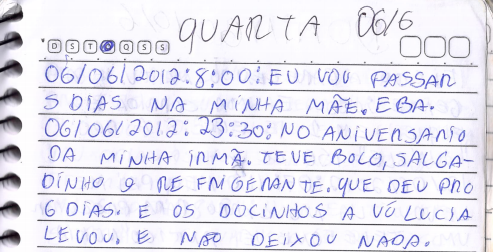 QUARTA 06/6
D S T Q Q S S
06/06/2012:8:00:EU VOU PASSAR
5 DIAS NA MINHA MÃE. EBA.
06/06/2012:23:30:NO ANIVERSARIO
DA MINHA IRMÃ. TEVE BOLO, SALGA-
DINHO e REFRIGERANTE. QUE DEU PRO
6 DIAS. E OS DOCINHOS A VÓ LUCIA
LEVOU. E NÃO DEIXOU NADA.